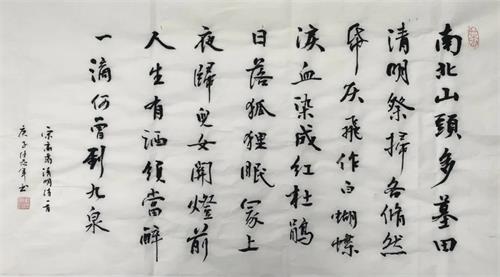 南北山頭多墓田
清明祭掃各脩然
帋灰飛作白蝴蝶
淚血染成紅杜鵑
日落狐狸眠冢上
夜歸兒女開燈前
人生有酒須當醉
一滴何曾到九泉
宋高翥清明詩一首
庚子